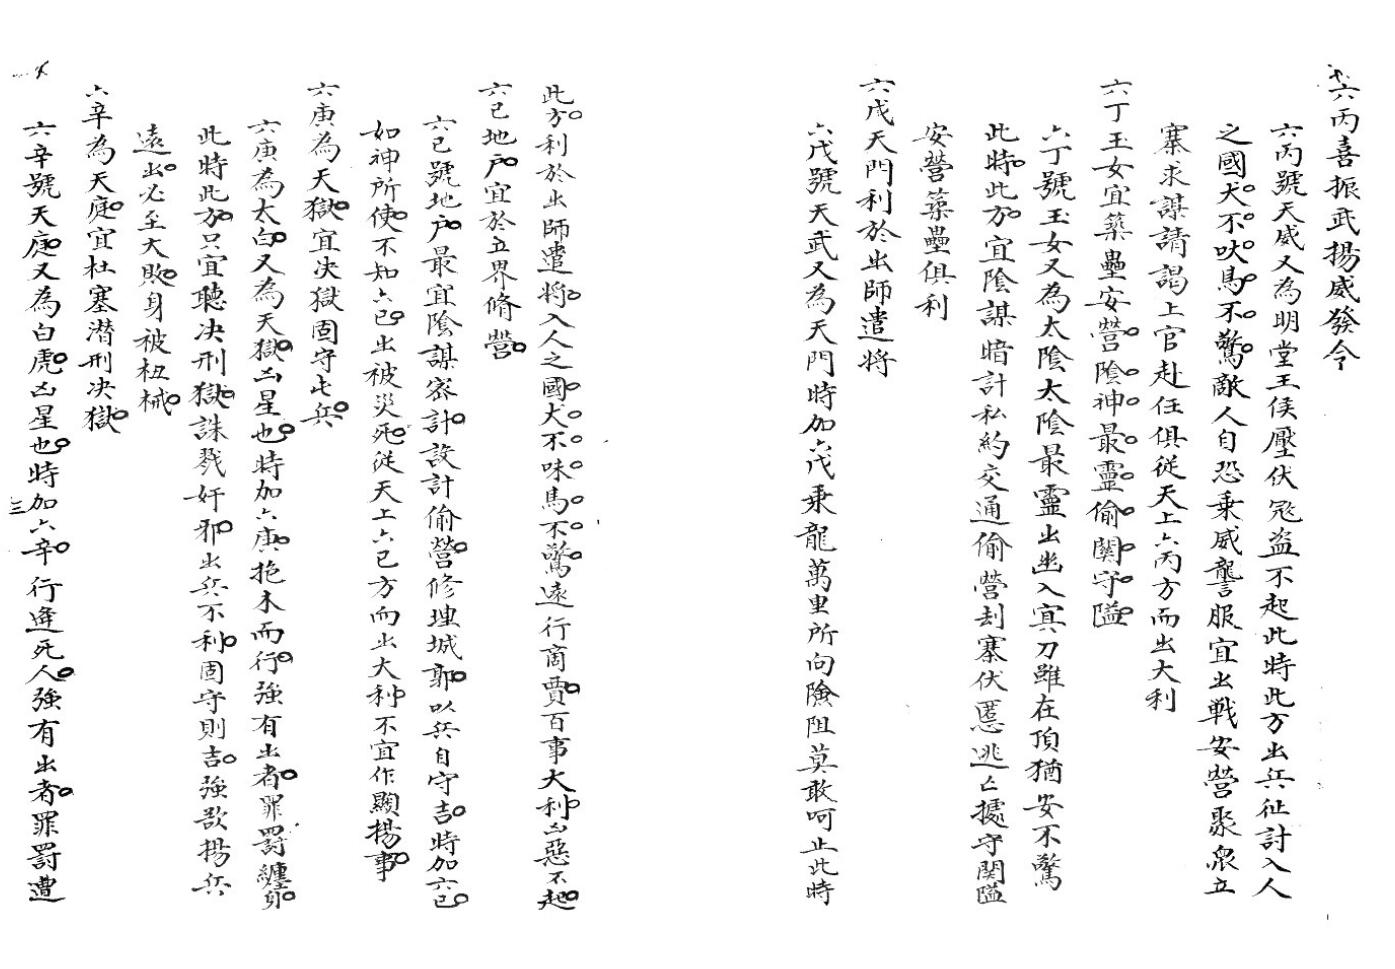 六丙喜振武揚威發令
六丙號天威又為明堂王侯壓伏冦盗不起此時此方出兵征討入人
之國犬不吠馬不驚敵人自恐乗威讋服宜出戦安營聚衆立
寨求謀請謁上官赴任俱従天上六丙方而出大利
六丁玉女宜築壘安營陰神最靈偷關守隘
六丁號玉女又為太陰太陰最靈出幽入㝠刀雖在頂猶安不驚
此時此方宜陰謀暗計私約交通偷營刦寨伏匿逃亡據守関隘
安營築壘俱利
六戊天門利於出師遣将
六戊號天武又為天門時加六戊乗龍萬里所向險阻莫敢呵止此時
此方利於出師遣将入人之國犬不味馬不驚遠行商賈百事大利凶惡不起
六己地户宜於立界脩營
六己號地户最宜陰謀宻計設計偷營修埋城郭以兵自守吉時加六己
如神所使不知六己出被災死従天上六己方而出大利不宜作顯揚事
六庚為天獄宜决獄固守屯兵
六庚為太白又為天獄凶星也時加六庚抱木而行強有出者罪罰纏身
此時此方只宜聽决刑獄誅戮奸邪出兵不利固守則吉強欲揚兵
遠出必至大敗身被杻械
六辛為天庭宜杜塞潜刑决獄
六辛號天庭又為白虎凶星也時加六辛行逢死人強有出者罪罰遭
三